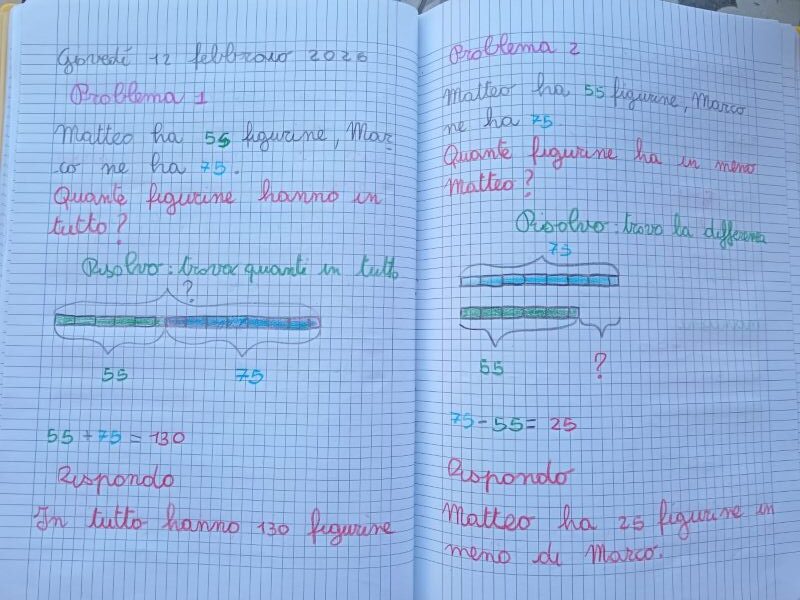 Giovedì 12 febbraio 2026
Problema 1
Matteo ha 55 figurine, Mar-
co ne ha 75.
Quante figurine hanno in
tutto?
Risolvo: trovo quanti in tutto
?
55 75
55 + 75 = 130
Rispondo
In tutto hanno 130 figurine
Problema 2
Matteo ha 55 figurine, Marco
ne ha 75.
Quante figurine ha in meno
Matteo?
Risolvo: trovo la differenza
75
55 ?
75 - 55 = 25
Rispondo
Matteo ha 25 figurine in
meno di Marco.